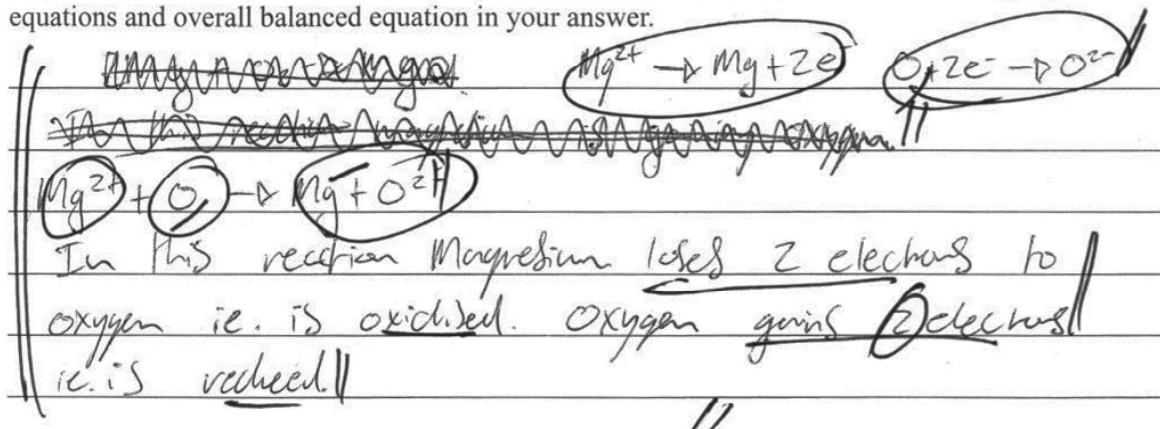 equations and overall balanced equation in your answer.
Mg²⁺ → Mg + 2e⁻ O + 2e⁻ → O²⁻
Mg²⁺ + O → Mg + O²⁻
In this reaction Magnesium loses 2 electrons to
oxygen ie. is oxidised. Oxygen gains 2 electrons
ie. is reduced.